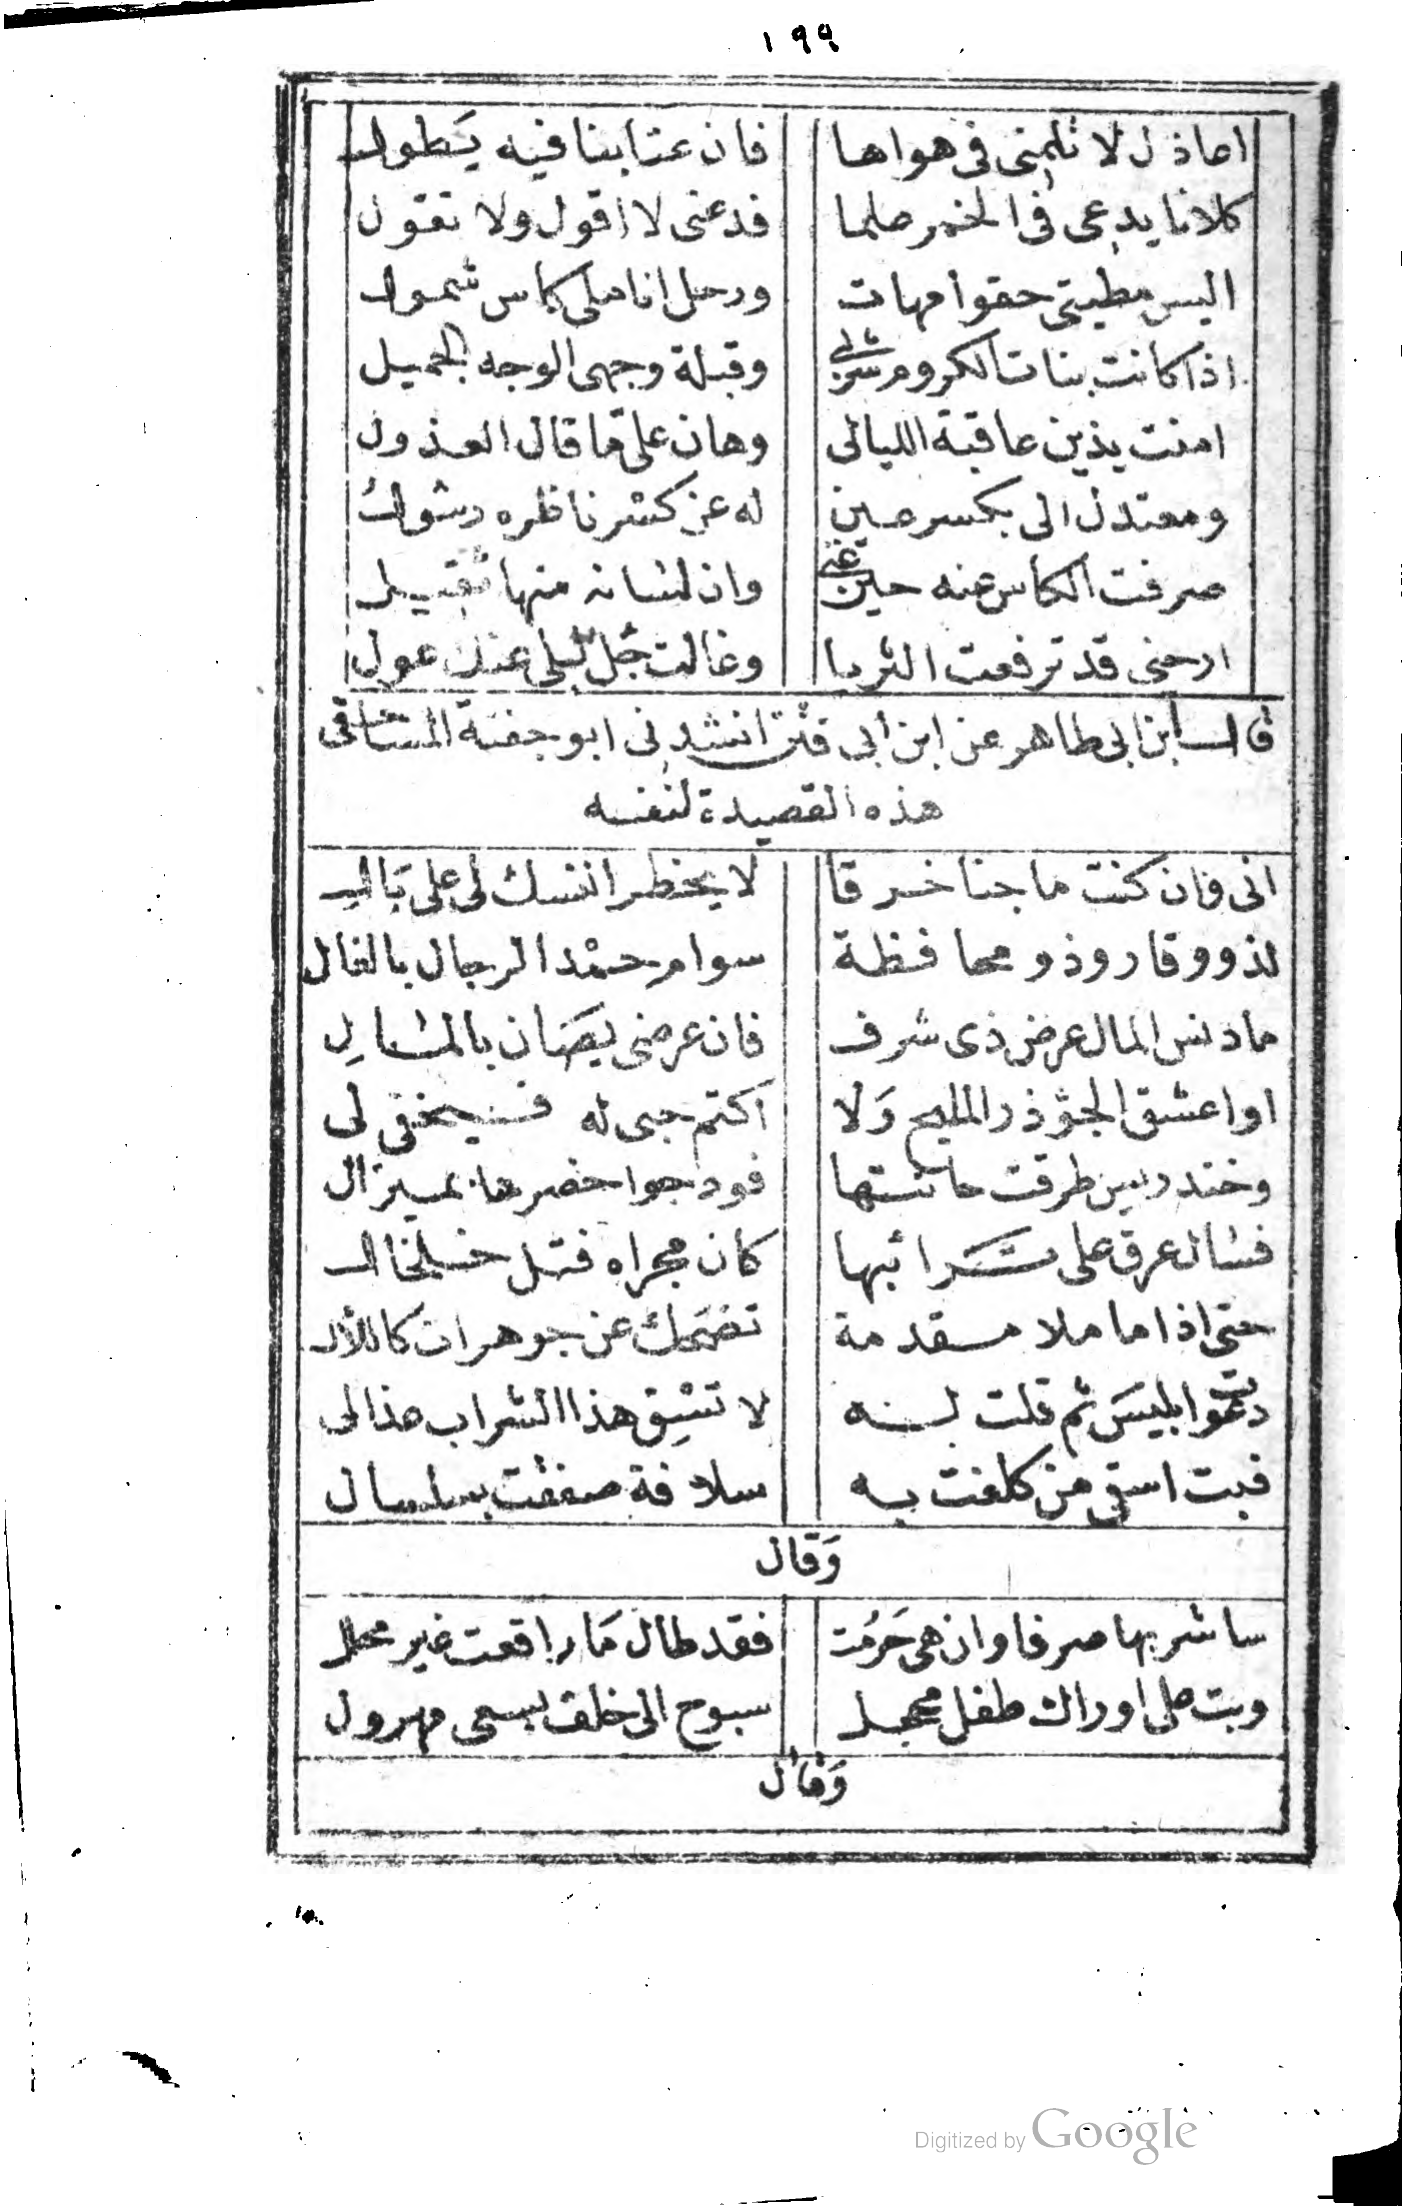 ١٩٩
اعاذل لا تلمنى فى هواها فان عتابنا فيه يَطول
كلانا يدعى فى الخمر علما فدعنى لا اقول ولا تقول
اليس مطيتى حقوا مهات ورحل اناملى كاس شمول
اذا كانت بنات الكروم شرابى وقبلة وجهى الوجه الجميل
امنت بذين عاقبة الليالى وهان علىّ ما قال العذول
ومعتدل الى بكسر عين له عن كسر ناظره رسول
صرفت الكاس عنه حين غنى وان لسانه منها ثقيل
ارحنى قد ترفعت الثريا وغالت جُل ليلى عنك غول
قال ابن ابى طاهر عن ابن أبى انشدنى ابو جفنة
هذه القصيدة لنفسه
انى وان كنت ماجنا خرقا لا يخطر النسك لى على بَال
لذو وقار وذو محافظة سوام حمْد الرجال بالغال
ما دنس المال عرض ذى شرف فان عرضى يصَان بالمال
او اعشق الجؤذر المليح وَلا اكتم حبى له فيخفى لى
وخندريس طرقت حانتها فودجوا خصرها بميزال
فسال عرق على تَرائبها كان مجراه فتل خلخال
حتى اذا ما ملا مقدمة تضحَك عن جوهر ات كاللأل
دعوت ابليسَ ثم قلت له لا تسْق هذا الشراب عذالى
فبت اسقى من كلفت به سلافة صفقت بسلسال
وَقال
ساشربها صرفا وان هى حَرُمت فقد طال مَا راقعت غير محلل
وبت على اوراك طفل محجل سبوح الى خلف يسعى مهرول
وَقال
Digitized by Google